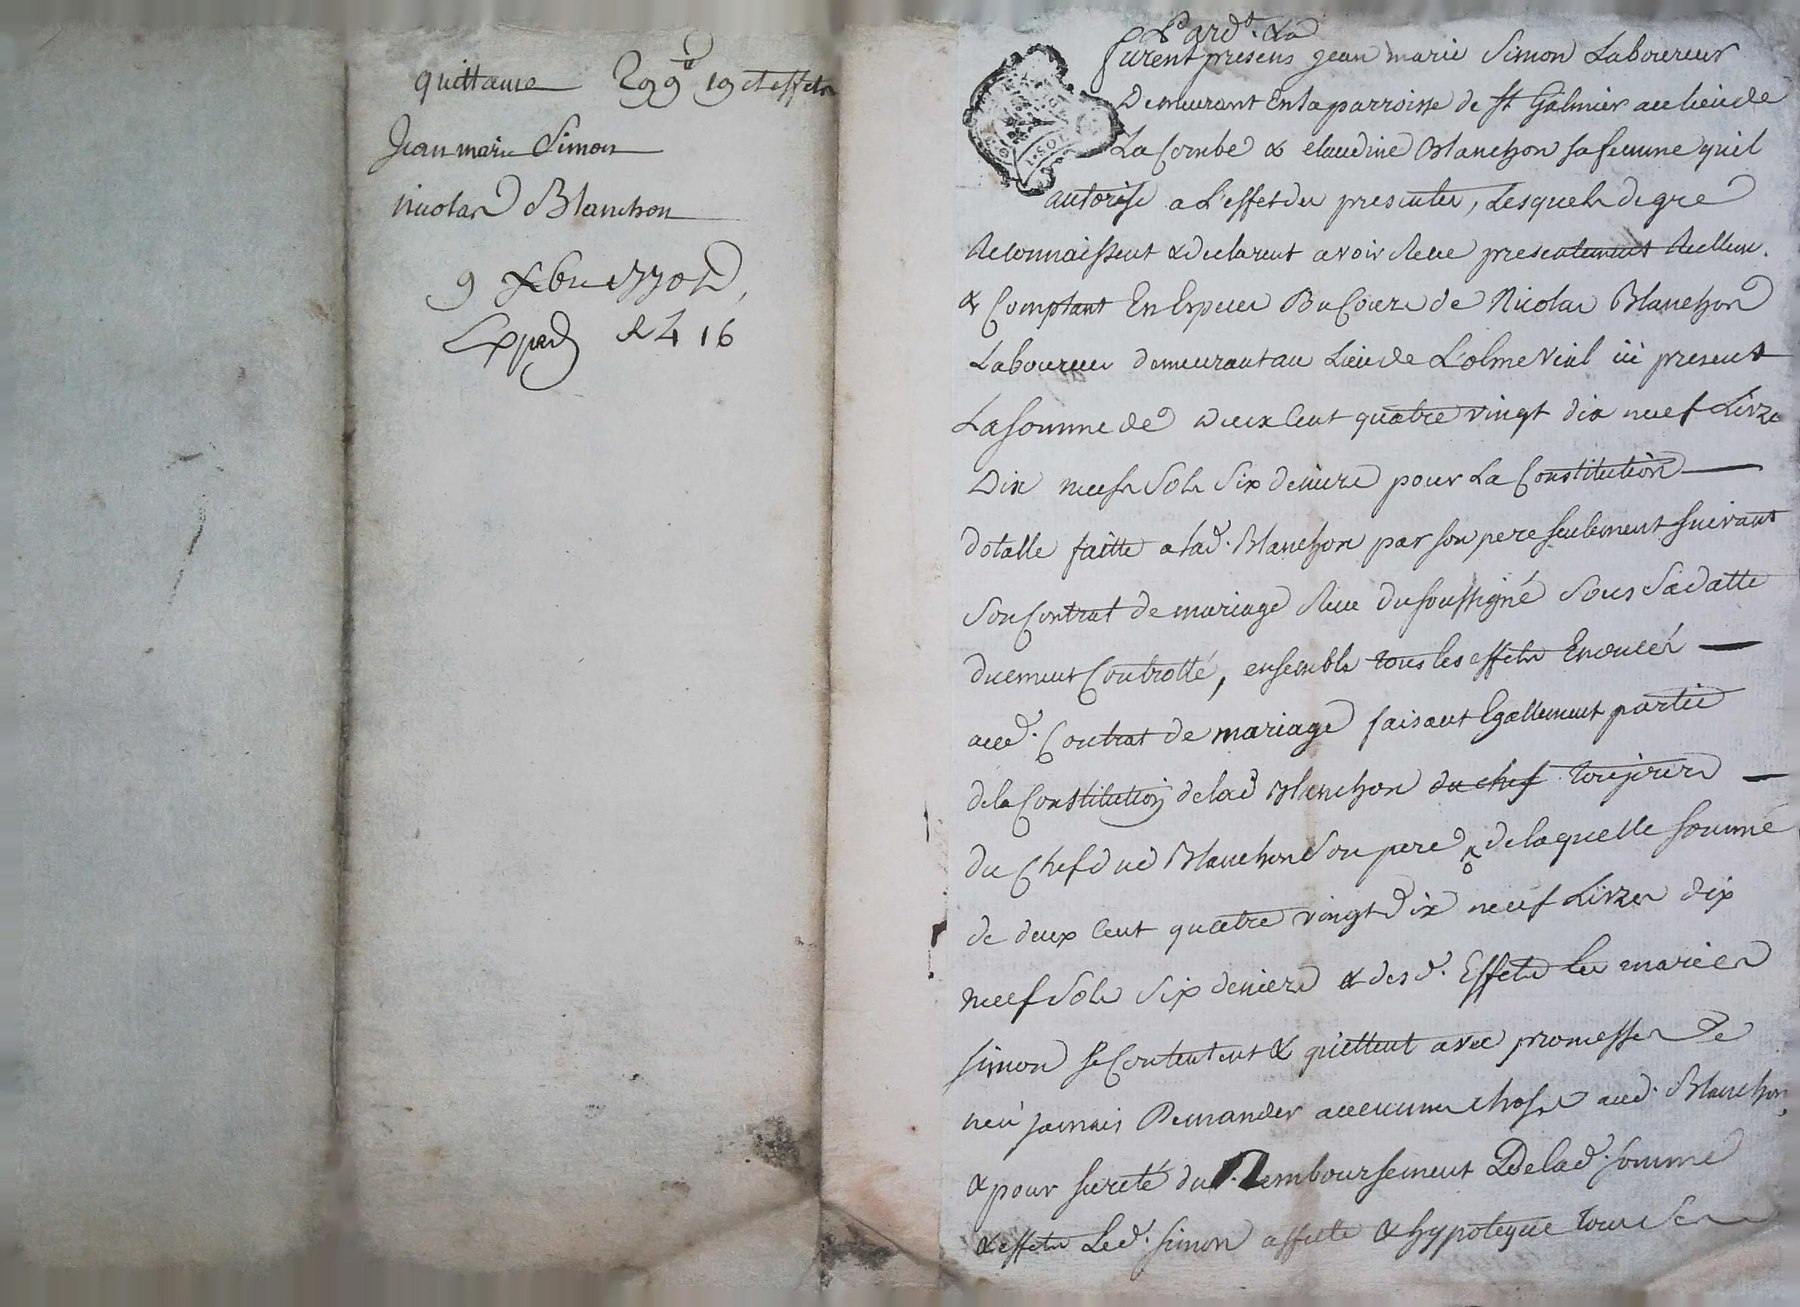 quittance 299ᵗ 19 et effets
Jean marie Simon
nicolas Blanchon
9 Xbre
Exped 4 16
Pardt. &a
furent presens jean marie Simon Laboureur
Demeurant en la parroisse de St Galmier au lieu de
La Combe & claudine Blanchon sa femme quil
autorise a L'effet des presentes, Lesquels de gre
Reconnaissent & declarent avoir Recu presentement Reellem.
& Comptant En Especes Du Cours de Nicolas Blanchon
Laboureur demeurant au Lieu de L'olme Vial ici present
La somme de Deux cent quatre vingt dix neuf Livres
Dix neuf Sols Six deniers pour La Constitution
dotalle faitte a lad. Blanchon par son pere seulement suivant
Son Contrat de mariage Recu du soussigné Sous Sa datte
duement Controllé, ensemble tous les effets Enoncés
aud. Contrat de mariage faisant Egallement partie
de la Constitution de lad Blanchon du chef toujours
du Chef dud Blanchon Son pere & de laquelle somme
de deux cent quatre vingt dix neuf Livres dix
neuf Sols Six deniers & desd. Effets les mariés
simon se Contentent & quittent avec promesse de
n'en jamais Demander aucune chose aud. Blanchon,
& pour sureté du Remboursement De lad. somme
& effets Led. simon affecte & hypoteque tous ses